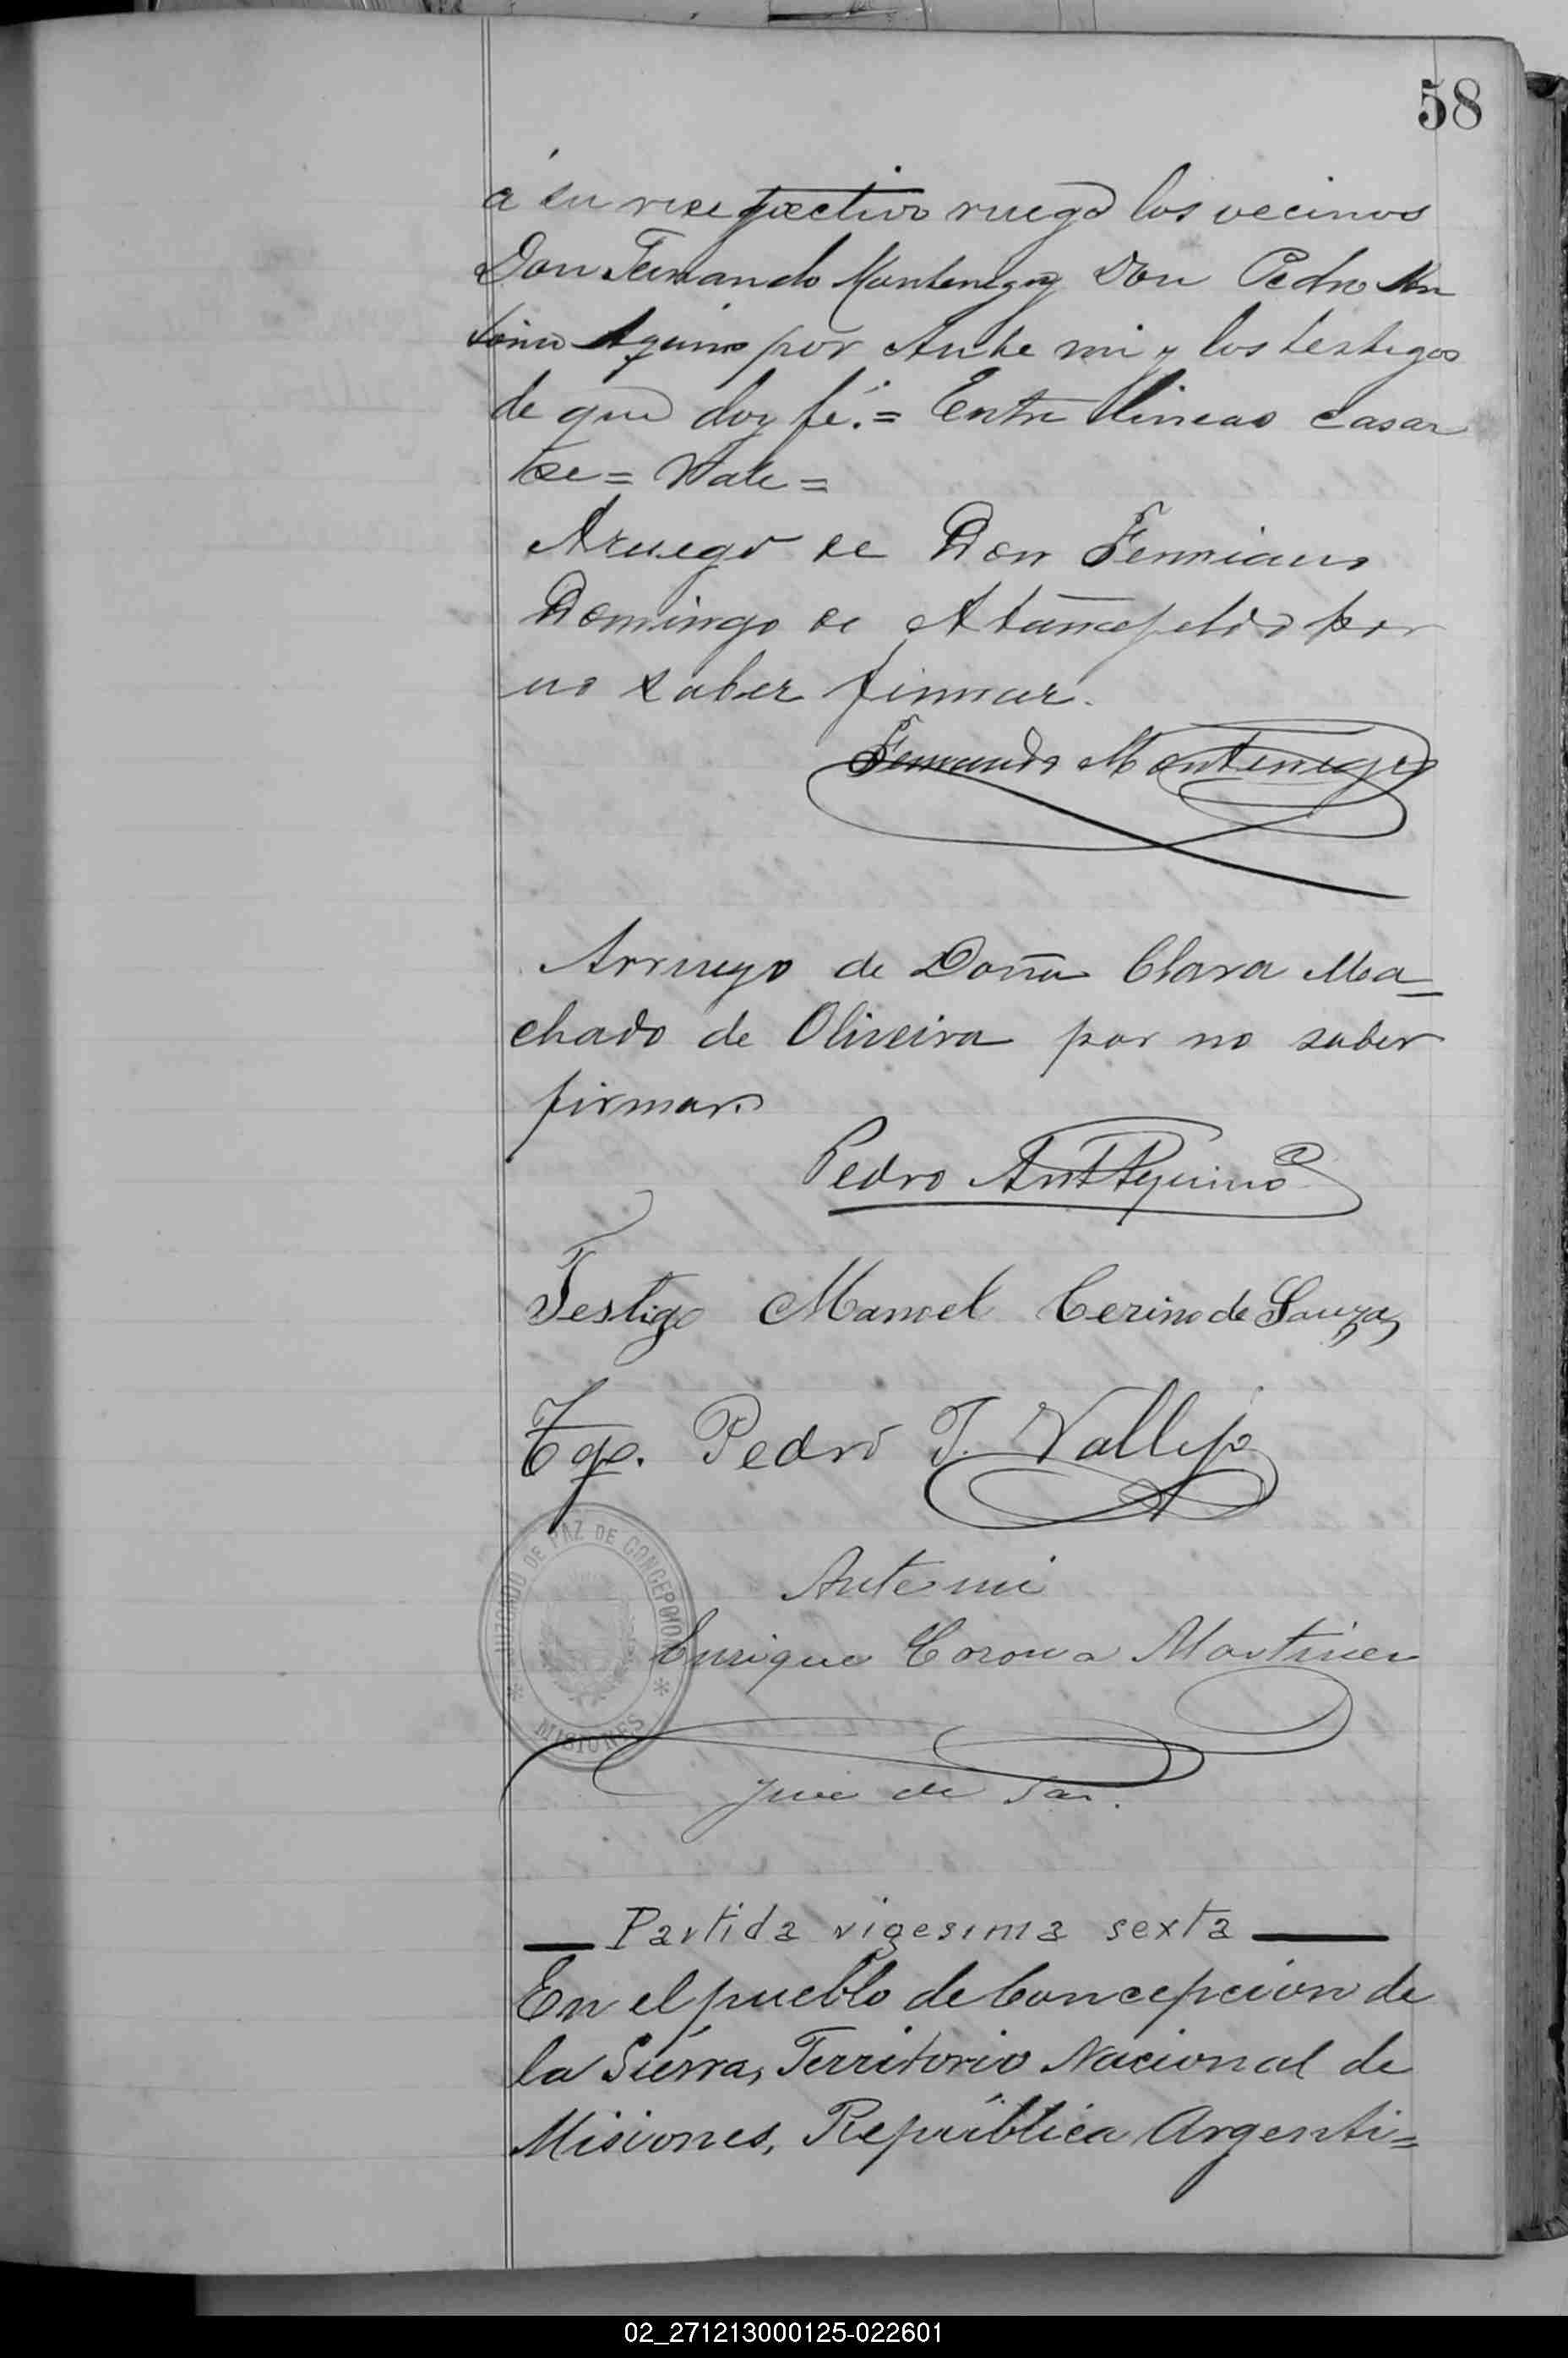 58
á su respectivo ruego los vecinos
Don Fernando Montenegro y Don Pedro An
tonio Aquino por Ante mi y los testigos
de que doy fé.= Entre lineas casar
se = Vale =
Aruego de Don Fermiano
Domingo de por
no saber firmar.
Fernando Montenegro
Arruego de Doña Clara Ma=
chado de Oliveira por no saber
firmar.
Pedro Ant Aquino
Testigo Manoel Cerino de Souza
Tgo. Pedro T. Vallejo
JUZGADO DE PAZ DE CONCEPCION
MISIONES
Ante mi
Enrique Corona Martinez
Juez de Paz.
— Partida vigesima sexta —
En el pueblo de Concepcion de
la Sierra, Territorio Nacional de
Misiones, República Argenti=
02_271213000125-022601